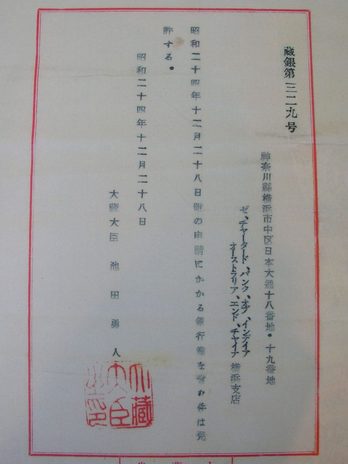 蔵銀第三二九号
神奈川縣横浜市中区日本大通十八番地・十九番地
ゼ、チャータード バンク、オブ、インデイア
オーストラリア、エンド、チャイナ 横浜支店
昭和二十四年十二月二十八日附の申請にかかる銀行業を営む件は免
許する。
昭和二十四年十二月二十八日
大蔵大臣 池田勇人
大蔵大臣之印